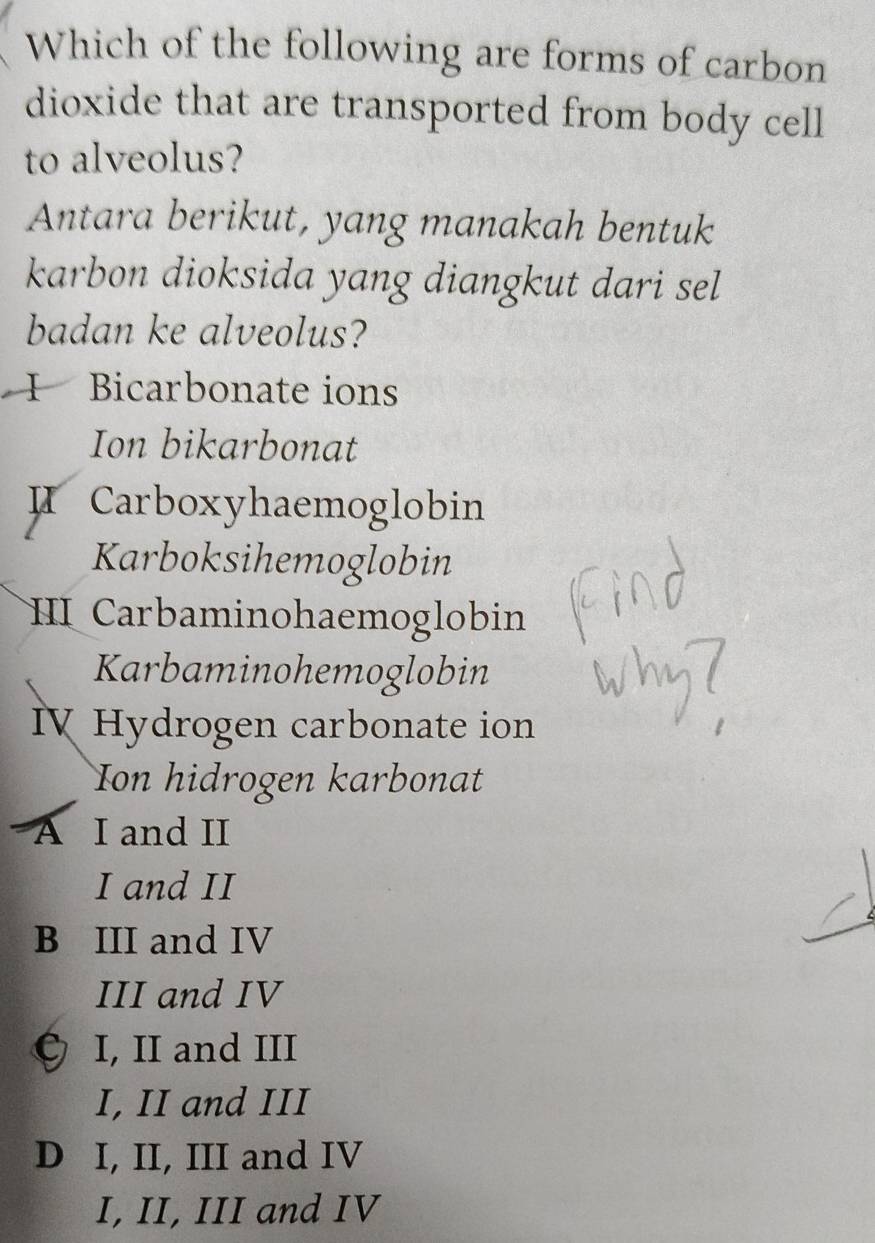 Which of the following are forms of carbon
dioxide that are transported from body cell
to alveolus?
Antara berikut, yang manakah bentuk
karbon dioksida yang diangkut dari sel
badan ke alveolus?
I Bicarbonate ions
Ion bikarbonat
II Carboxyhaemoglobin
Karboksihemoglobin
III Carbaminohaemoglobin
Karbaminohemoglobin
IV Hydrogen carbonate ion
Ion hidrogen karbonat
Find
why?
A I and II
I and II
B III and IV
III and IV
C I, II and III
I, II and III
D I, II, III and IV
I, II, III and IV